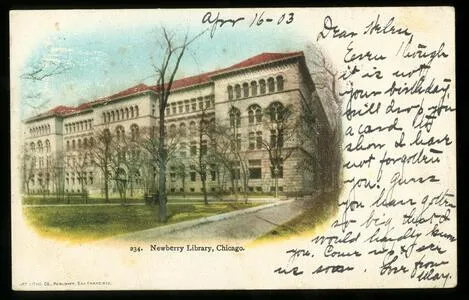 Apr 16-03
Dear Helen,
Even though
it is not
your birthday,
will drop you
a card to
show I have
not forgotten
you. Guess
you have gotten
so big that I
would hardly know
you. Come up & see
us soon. Love from
May.
234. Newberry Library, Chicago.
LITHO. CO., PUBLISHER, SAN FRANCISCO.